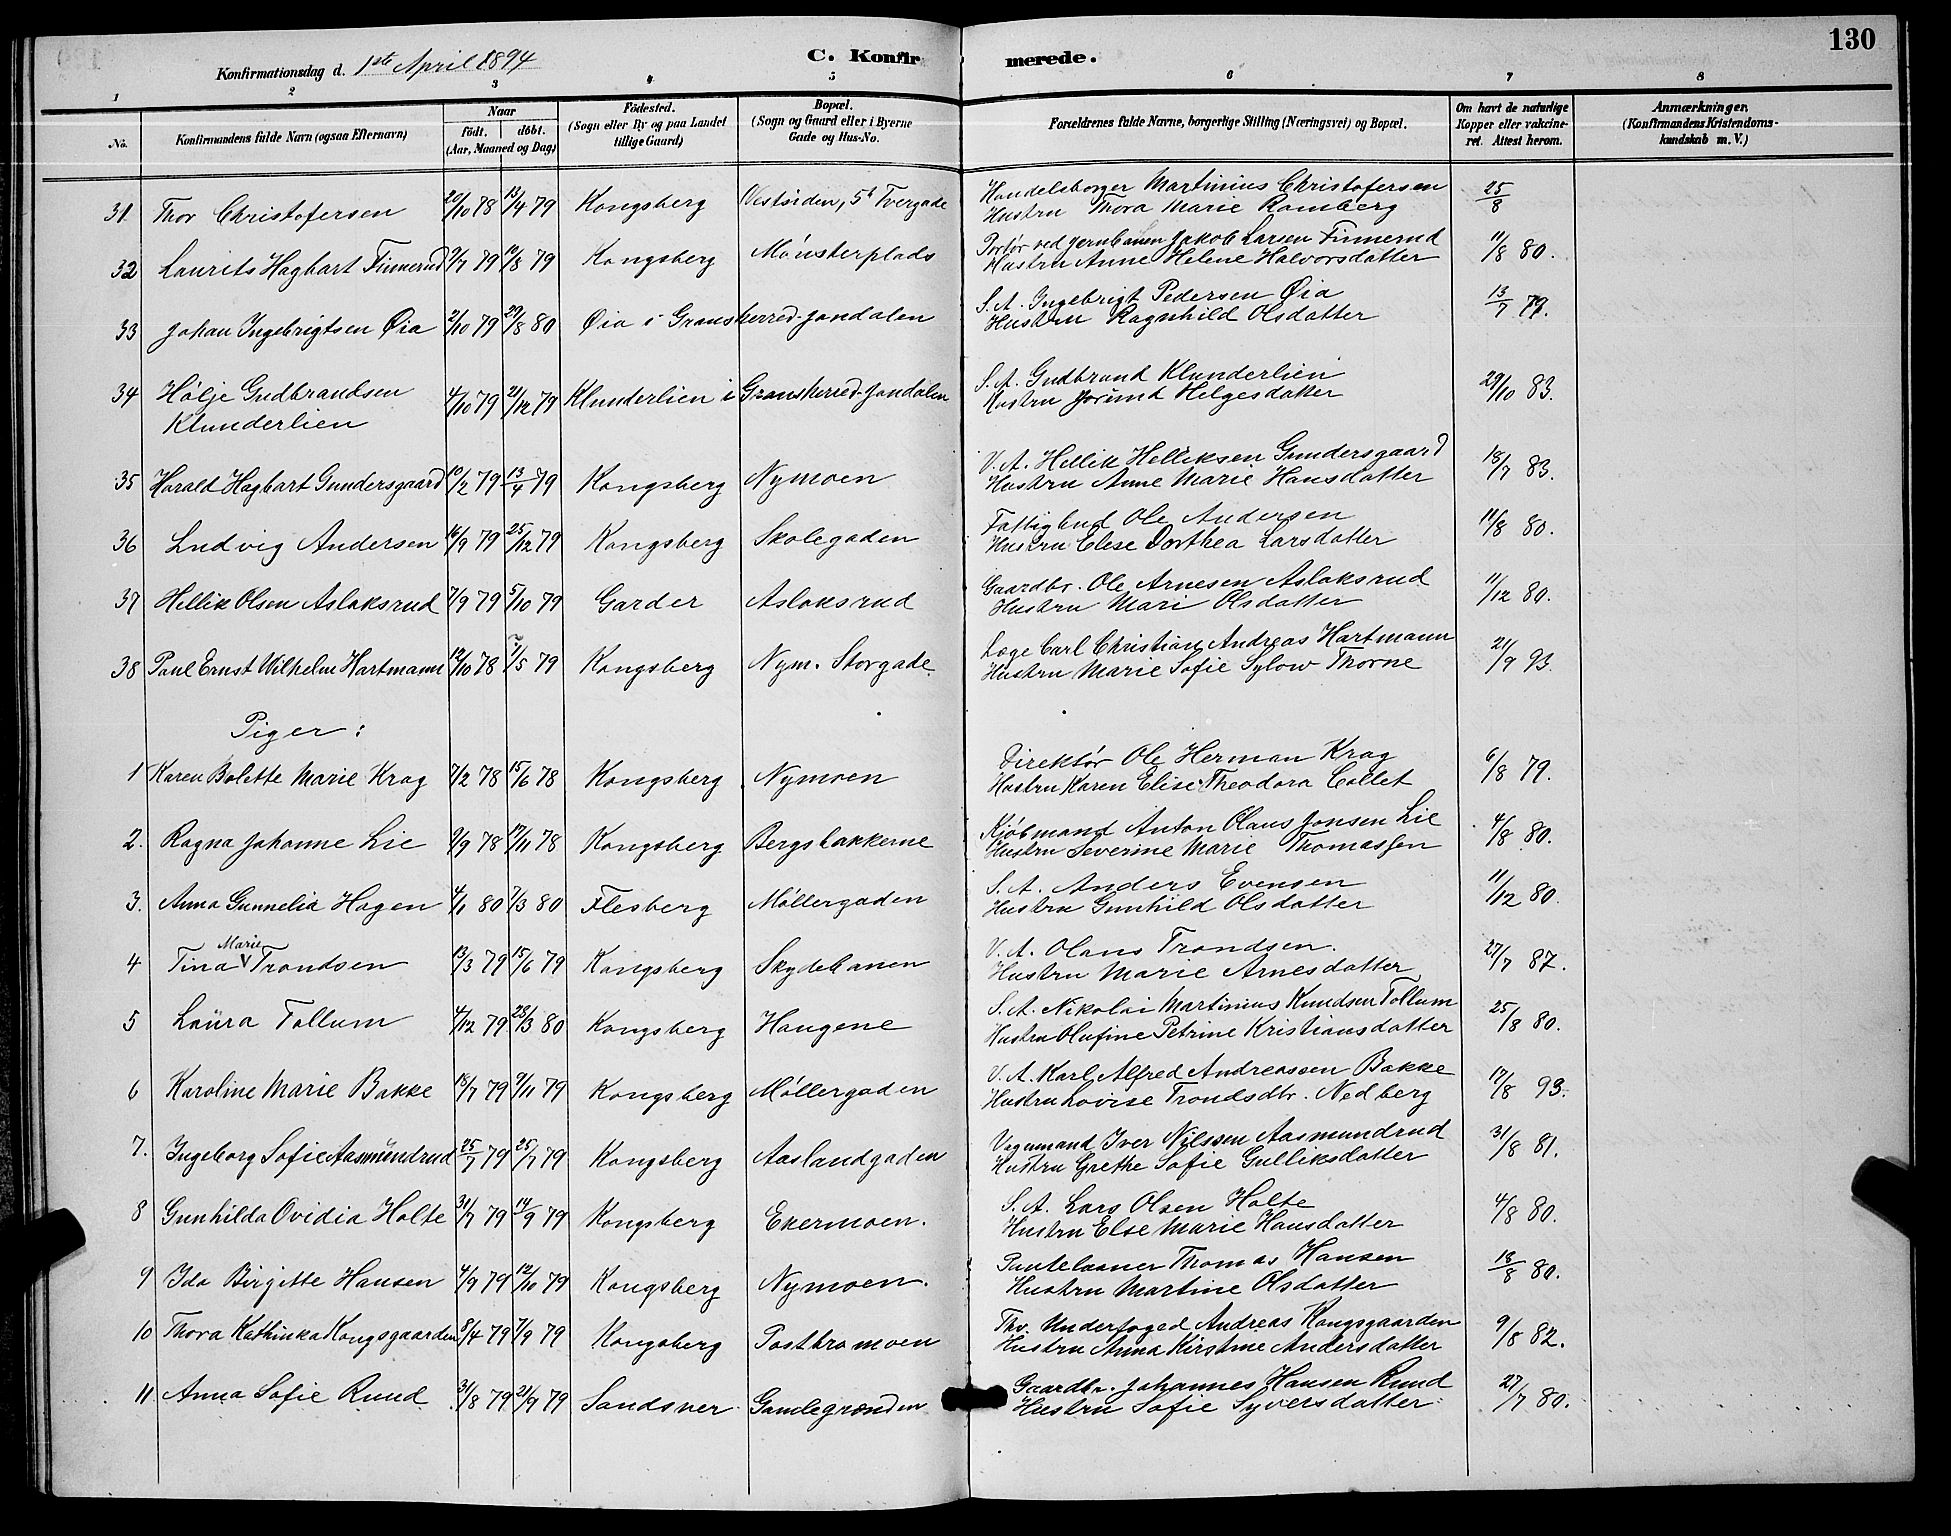 130
Konfirmationsdag d. 1ste April 1894
C. Konfirmerede.
1 2 3 4 5 6 7 8
No.
Konfirmandens fulde Navn (ogsaa Efternavn)
Naar
födt. döbt.
(Aar, Maaned og Dag)
Födested.
(Sogn eller By og paa Landet
tillige Gaard)
Bopæl.
(Sogn og Gaard eller i Byerne
Gade og Hus-No.
Forældrenes fulde Navne, borgerlige Stilling (Næringsvei) og Bopæl.
Om havt de naturlige
Kopper eller vakcine-
ret. Attest herom.
Anmærkninger.
(Konfirmandens Kristendoms-
kundskab m. V.)
31. Thor Christofersen 20/10 78 13/4 79 Kongsberg Vestsiden, 5t Tvergade Handelsborger Martinius Christofersen 25/8
Hustru Thora Marie Ramberg
32 Laurits Hagbart Finnerud 9/7 79 10/8 79 Kongsberg Mønsterplads Portør ved jernbanen Jakob Larsen Finnerud 11/8 80.
Hustru Anne Helene Halvorsdatter
33 Johan Ingebrigtsen Øia 2/10 79 29/8 80 Øia i Gransherred-Jondalen S. A. Ingebrigt Pedersen Øia 13/7 79.
Hustru Ragnhild Olsdatter
34 Hølje Gudbrandsen 4/10 79 21/12 79 Klunderlien i Gransherred-Jondalen S. A. Gudbrand Klunderlien 29/10 83.
Klunderlien Hustru Jorund Helgesdatter
35 Harald Hagbart Gundersgaard 10/2 79 13/4 79 Kongsberg Nymoen V. A. Hellik Helliksen Gundersgaard 18/7 83.
Hustru Anne Marie Hansdatter
36 Ludvig Andersen 16/9 79 25/12 79 Kongsberg Skolegaden Fattiglem Ole Andersen 11/8 80.
Hustru Elise Dorthea Larsdatter
37 Hellik Olsen Aslaksrud 7/9 79 5/10 79 Garder Aslaksrud Gaardbr. Ole Arnesen Aslaksrud 11/12 80.
Hustru Mari Olsdatter
38 Paul Ernst Wilhelm Hartmann 12/10 78 7/5 79 Kongsberg Nym. Storgade. Læge Carl Christian Andreas Hartmann 21/9 93.
Hustru Marie Sofie Sylow Thorne
Piger:
1 Karen Bolette Marie Krag 7/2 78 15/6 78 Kongsberg Nymoen Direktør Ole Herman Krag 6/8 79.
Hustru Karen Elise Theodora Collet
2. Ragna Johanne Lie 9/9 78 17/11 78 Kongsberg Bergsbakkerne Kjøbmand Anton Olaus Jonsen Lie 4/8 80.
Hustru Severine Marie Thomassen
3. Anna Gunnelia Hagen 4/1 80 7/3 80 Flesberg Møllergaden S. A. Anders Evensen 11/12 80.
Hustru Gunhild Olsdatter
4 Tina Marie Trondsen 13/3 79 15/6 79 Kongsberg Skydebanen V. A. Olaus Trondsen. 27/7 87.
Hustru Marie Arnesdatter
5 Laura Tollum 4/12 79 28/3 80 Kongsberg Haugene S. A. Nikolai Martinius Knudsen Tollum 25/8 80.
Hustru Olufine Petrine Kristiansdatter
6 Karoline Marie Bakke 18/7 79 9/11 79 Kongsberg Møllergaden V. A. Karl Alfred Andreassen Bakke 17/8 93.
Hustru Lovise Trondsdtr. Nedberg
7. Ingeborg Sofie Aasmundrud 25/7 79 25/7 79 Kongsberg Aaslandgaden Vognmand Iver Nilssen Aasmundrud 31/8 81.
Hustru Grethe Sofie Gulliksdatter
8 Gunhilda Ovidia Holte 31/7 79 14/9 79 Kongsberg Ekermoen. S. A. Lars Olsen Holte 4/8 80.
Hustru Else Marie Hansdatter
9 Ida Birgitte Hansen 4/9 79 12/10 79 Kongsberg Nymoen. Pantelaaner Thomas Hansen 18/8 80.
Hustru Martine Olsdatter
10 Thora Kathinka Kongsgaarden 8/4 79 7/9 79 Kongsberg Postbromoen Thv. Underfoged Andreas Kongsgaarden 9/8 82.
Hustru Anna Kirstine Andersdatter
11 Anna Sofie Ruud 31/8 79 21/9 79 Sandsver Gamlegrænden Gaardbr. Johannes Hansen Ruud 27/7 80.
Hustru Sofie Syversdatter